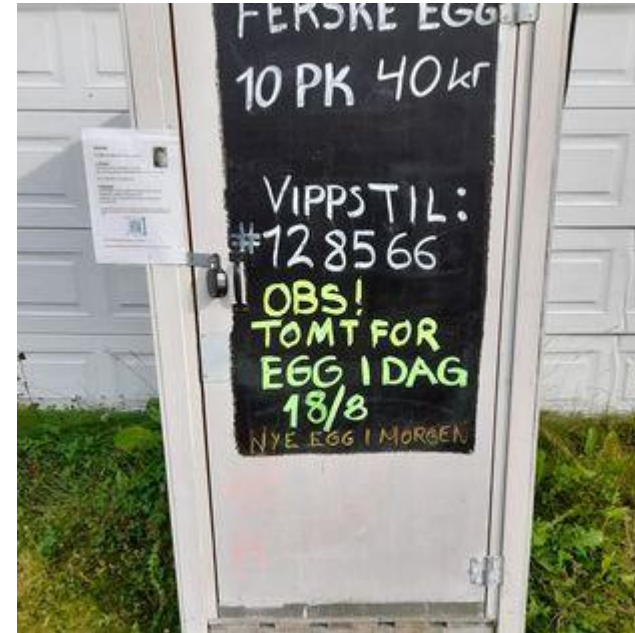 FERSKE EGG
10 PK 40 kr
VIPPS TIL:
#128566
OBS!
TOMT FOR
EGG I DAG
18/8
NYE EGG I MORGEN